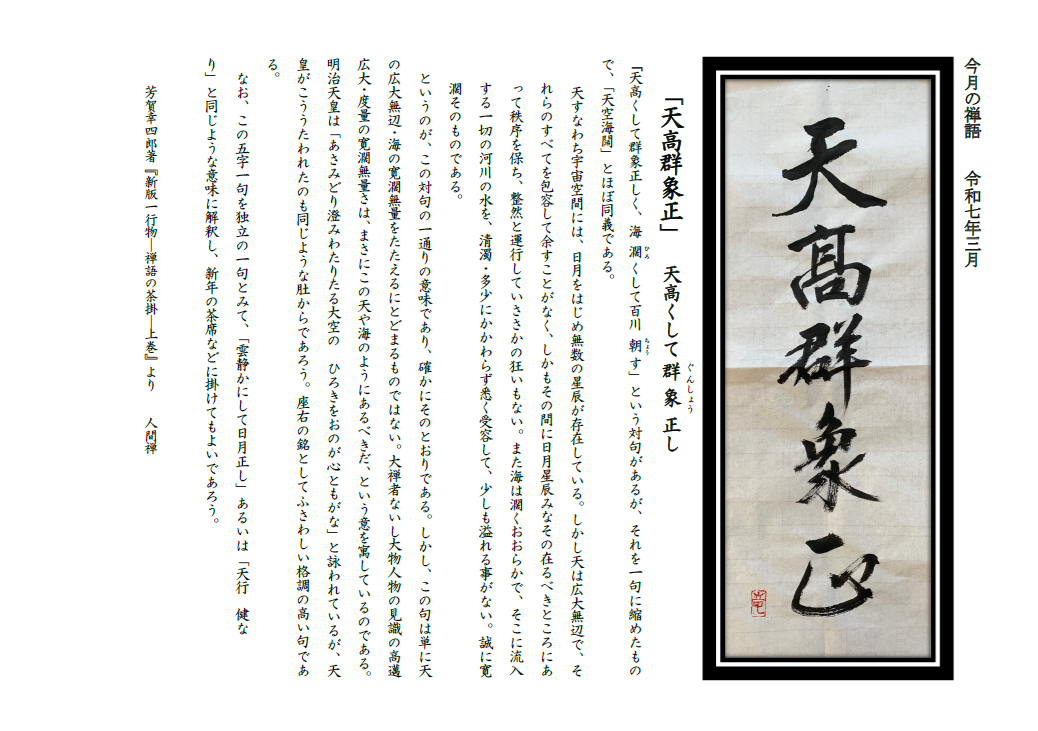 今月の禅語　　令和七年三月
天高群象正
「天高群象正」　天高くして群象正し
ぐんしょう
「天高くして群象正しく、海濶くして百川朝す」という対句があるが、それを一句に縮めたもの
ひろ
ちょう
で、「天空海闊」とほぼ同義である。
天すなわち宇宙空間には、日月をはじめ無数の星辰が存在している。しかし天は広大無辺で、そ
れらのすべてを包容して余すことがなく、しかもその間に日月星辰みなその在るべきところにあ
って秩序を保ち、整然と運行していささかの狂いもない。また海は濶くおおらかで、そこに流入
する一切の河川の水を、清濁・多少にかかわらず悉く受容して、少しも溢れる事がない。誠に寛
濶そのものである。
というのが、この対句の一通りの意味であり、確かにそのとおりである。しかし、この句は単に天
の広大無辺・海の寛濶無量をたたえるにとどまるものではない。大禅者ないし大物人物の見識の高邁
広大・度量の寛濶無量さは、まさにこの天や海のようにあるべきだ、という意を寓しているのである。
明治天皇は「あさみどり澄みわたりたる大空の　ひろきをおのが心ともがな」と詠われているが、天
皇がこううたわれたのも同じような肚からであろう。座右の銘としてふさわしい格調の高い句であ
る。
なお、この五字一句を独立の一句とみて、「雲静かにして日月正し」あるいは「天行　健な
り」と同じような意味に解釈し、新年の茶席などに掛けてもよいであろう。
芳賀幸四郎著『新版一行物―禅語の茶掛―上巻』より　　人間禅